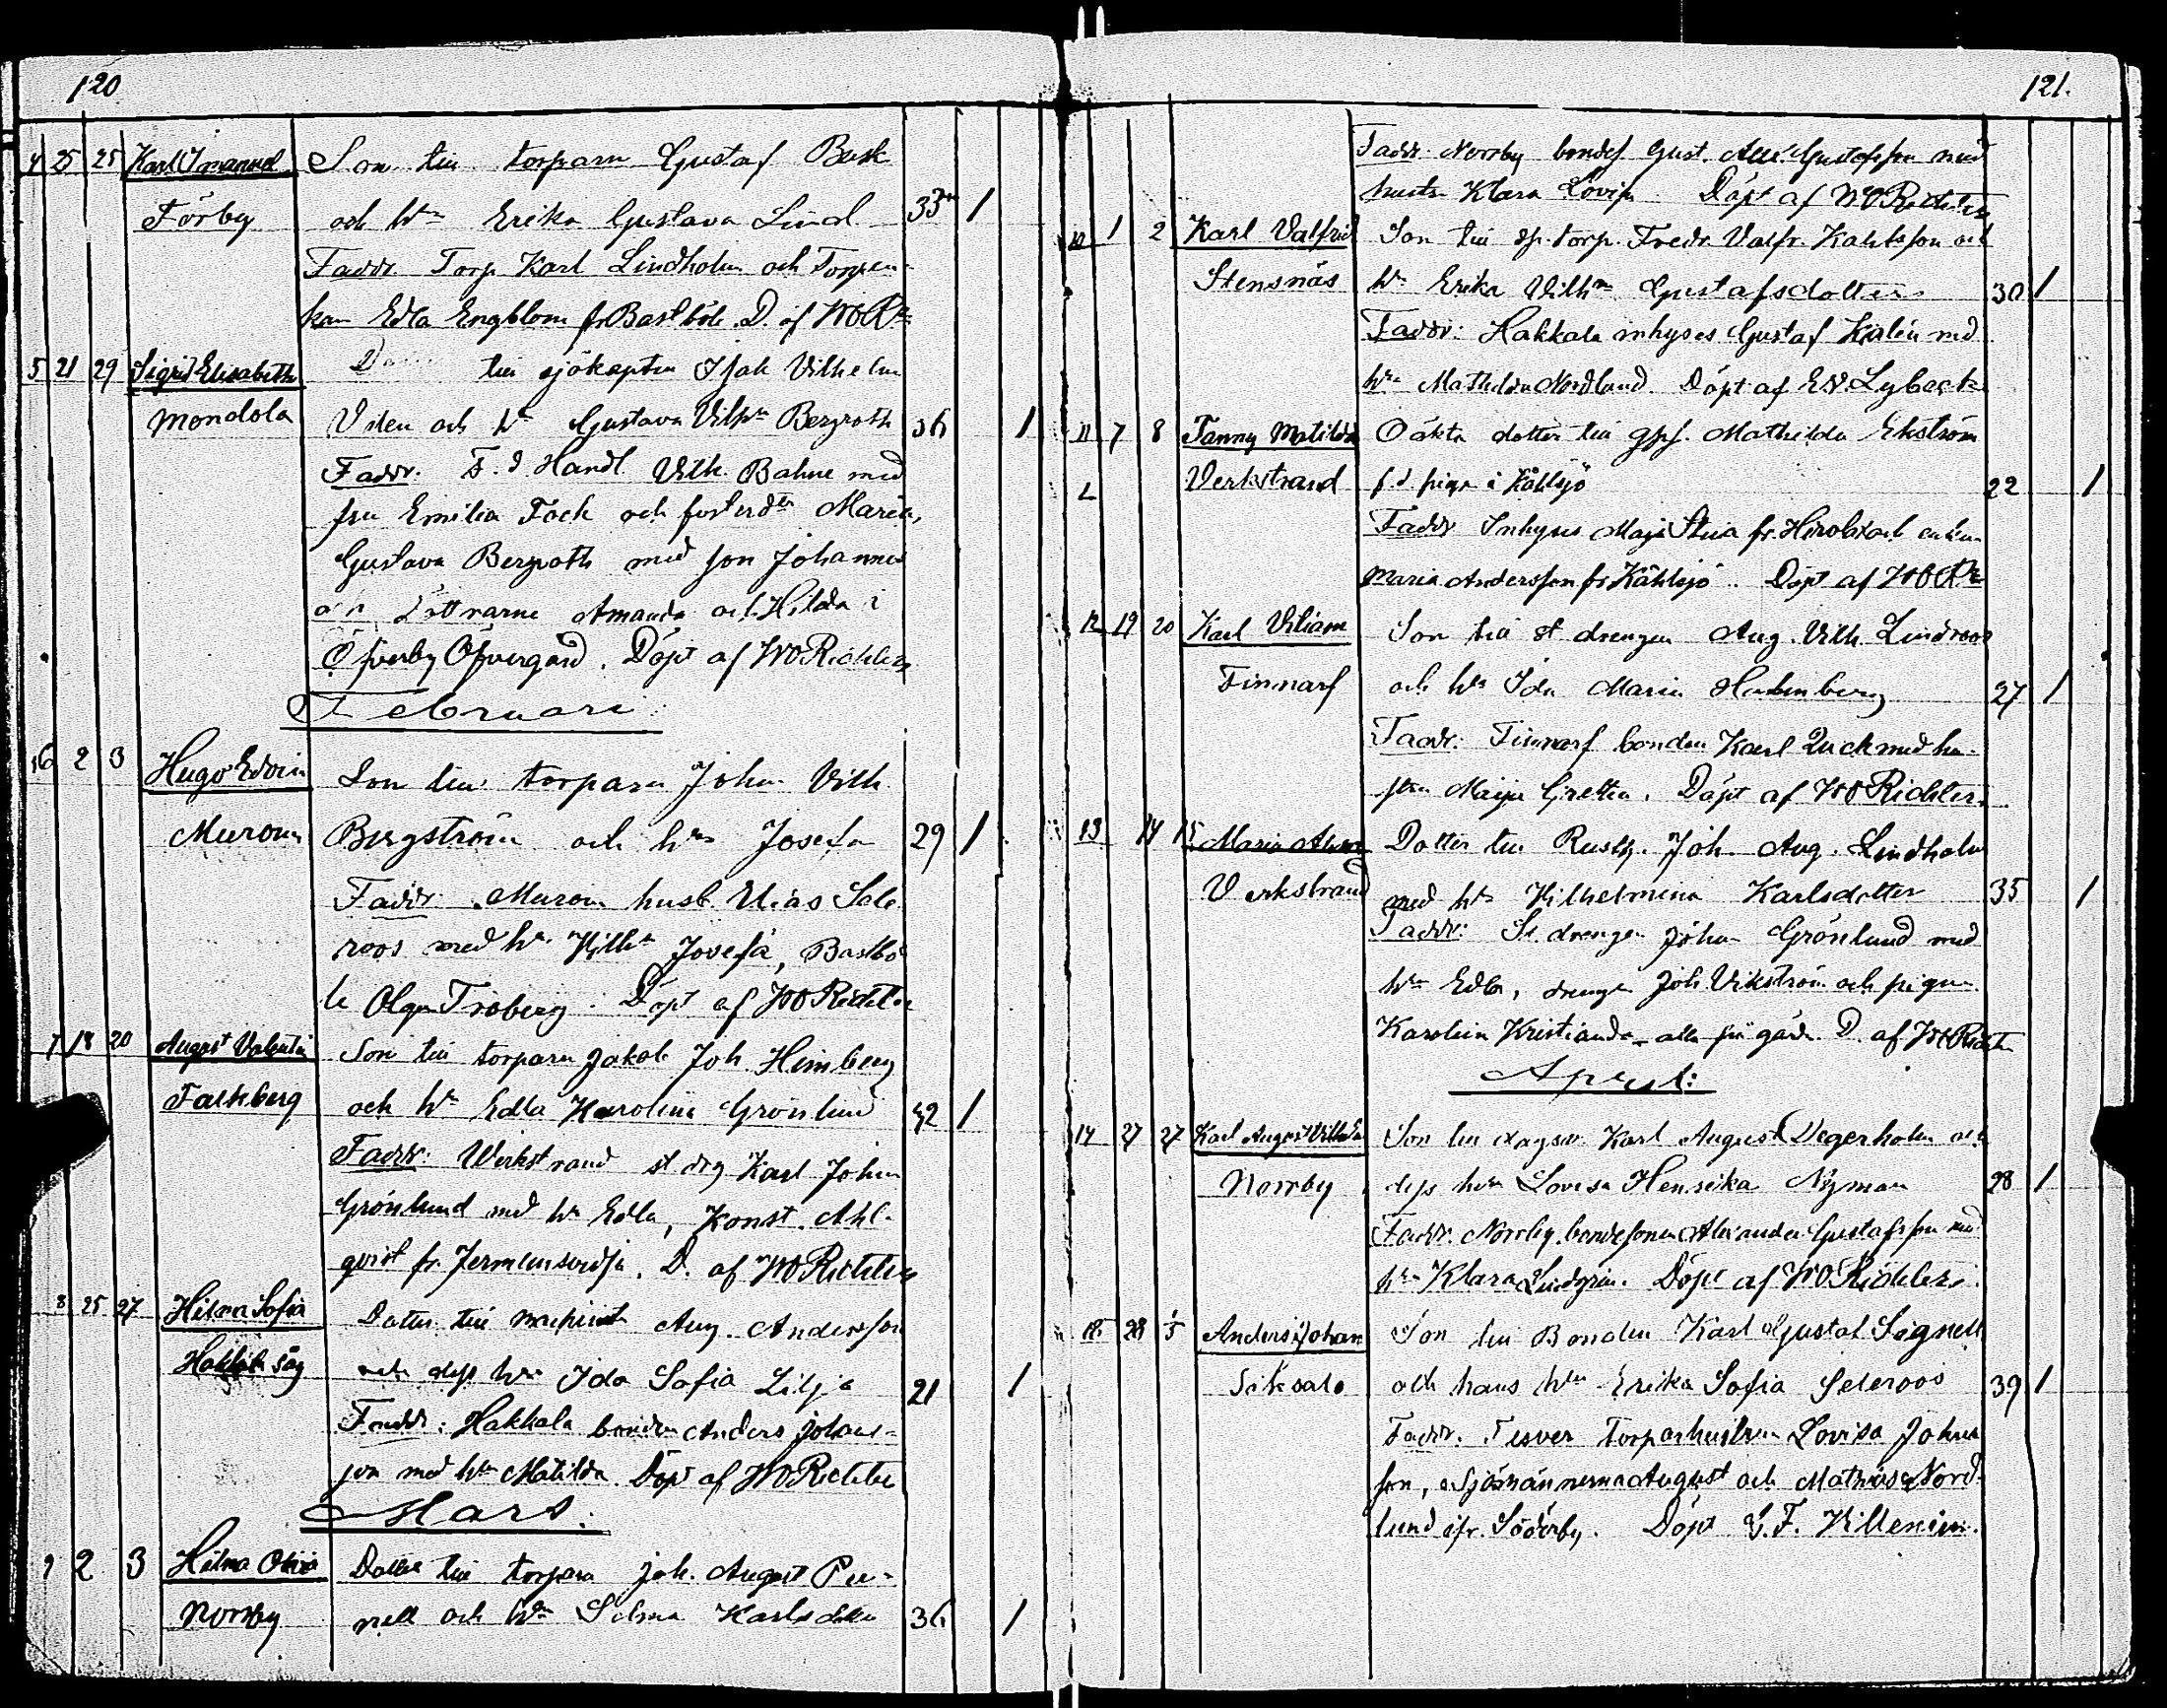 120
4 25 25 Karl Imanuel Son till torparn Gustaf Busk
Förby och hn Erika Gustava Lind 33 /
Faddr. Torp Karl Lindholm och Torpen-
kan Edla Engblom fr Bastböle. D. af WOR
5 21 29 Sigrid Elisabeth till sjökapten Isak Vilhelm
Mondola och hn Gustava Vilhn Bergroth 36 /
Faddr. F. d Handl. Vilh. Bahne med
fru Emilia Fock och fosterdn Maria,
Gustava Bergroth med son Johannes
och döttrarne Amanda och Hilda i
Öfverby Öfvergård. Döpt af WO Richter
Februari
6 2 3 Hugo Edvin Son till torparn Johan Vilh.
Murom Bergström och hn Josefa 29 /
Faddr. Murom husb. Elias Sale
roos med hn Vilhn Josefa, Bastbö
le Olga Troberg. Döpt af WO Richter
7 18 20 August Valentin Son till torparn Jakob Joh. Heimberg
Falkberg och hn Edla Karolina Grönlund 42 /
Faddr. Werkstrand st drg Karl Johan
Grönlund med hn Edla, Konst. Ahl-
qvist fr. D. af WO Richter
8 25 27 Hilma Sofia Dotter till Aug. Andersson
Hakkala såg och dess hn Ida Sofia Lilja 21 /
Faddr: Hakkala bonden Anders Johans-
son med hn Matilda. Döpt af WO Richter
Mars:
9 2 3 Hilma Olivia Dotter till torparn Joh. August Pu-
Norrby nell och hn Selma Karlsdotter 36 /
121.
Faddr. Norrby bondes. Gust. Alex Gustafsson med
hustr. Klara Lovisa Döpt af WO Richter
10 1 2 Karl Valfrid Son till sp. torp. Fredr. Valfr. Karlsson och
Stensnäs hn Erika Vilhn Gustafsdotter 30 /
Faddr: Hakkala inhyses Gustaf Kalén md
hn Mathilda Nordlund. Döpt af Edv. Lyback
11 7 8 Fanny Matilda Oäkta dotter till gpf. Mathilda Ekström
Verkstrand f.d. piga i Kåhlsjö 22 /
Faddr Inhyses Maja Stina fr. och enkan
Maria Andersson fr Kåhlsjö. Döpt af WOR
12 19 20 Karl Viliam Son till st drengen Aug. Vilh. Lindroos
Finnarf och hn Ida Maria Holmberg 27 /
Faddr: Finnarf bonden Karl Quick med hu-
stru Maija Gretha. Döpt af WO Richter.
13 14 15 Maria Alma Dotter till Rusth. Joh. Aug. Lindholm
Verkstrand med hn Vilhelmina Karlsdotter 35 /
Faddr: St. drengen Johan Grönlund med
hn Edla, drengen Joh Vikström och pigan
Karolina Kristianda alla fr. gård. D. af WO Richter
April:
14 27 27 Karl August Vilhelm Son till dagsv. Karl August Degerholm och
Norrby dess hn Lovisa Henrika Nyman 28 /
Faddr. Norrby bondesonen Alexander Gustafsson med
hn Klara Lindgren. Döpt af WO Richter.
15 28 1/5 Anders Johan Son till Bonden Karl Gustaf Signell
Siksalo och hans hn Erika Sofia Seleroos 39 /
Faddr. Tesver torparhustrun Lovisa Johns
son, Sjömännerna August och Mathias Nord-
lund ifr. Söderby. Döpt G. F. Villenius.